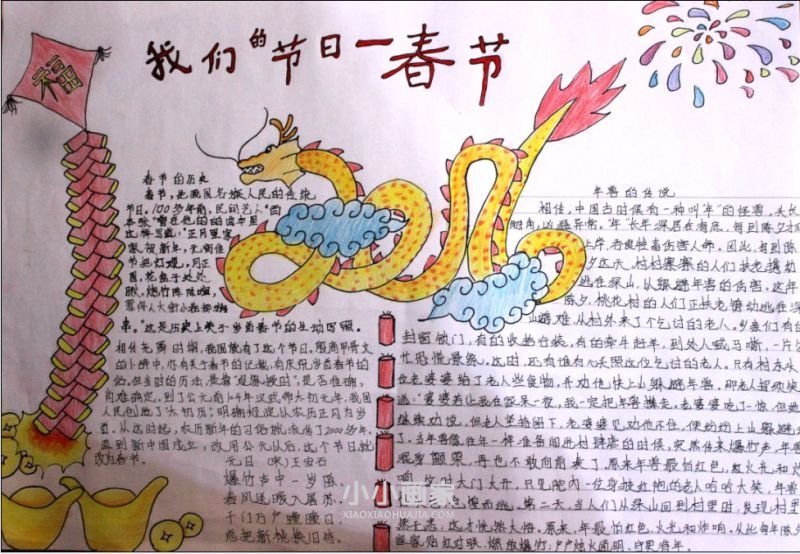 我们的节日一春节
福
春节的历史
春节，是我国各族人民的传统
节日。100多年前，民间艺人"面
"正月里家
家贺新年，元宵佳
节把灯观，月正
圆，花盒子处处
瞅，炮竹阵阵响，
惹得人大街小巷
串。"这是历史上关于当首春节的生动写照。
相传尧舜时期，我国就有了这个节日。殷商甲骨文
的小碑中，亦有关于春节的记载，有庆祝当首春节的
俗。但当时的历法，是靠"观象授时"，是否准确，
尚难确定，到了公元前104年汉武帝太初元年，我国
人民创造了太初历，明确规定从农历正月为岁
首。从这时起，农历新年的习俗就流传了2000多年。
直到新中国成立，改用公元以后，这个节日就
改为春节。
元日（宋）王安石
爆竹声中一岁除
春风送暖入屠苏
千门万户曈曈日，
总把新桃换旧符。
年兽的传说
相传，中国古时候有一种叫"年"的怪兽，头长
触角，凶猛异常，"年"长年深居在海底，每到除夕
上岸，吞食牲畜伤害人命，因此，每到除
夕这天，村村寨寨的人们扶老携幼
逃往深山，以躲避年兽的伤害，这年
除夕，桃花村的人们正扶老携幼逃往深
山避难，从村外来了个乞讨的老人。乡亲们有的
封窗锁门，有的收拾行装，有的牵牛赶羊，到处人喊马嘶，一片
忙恐慌景象，这时，还有谁有心关照这位乞讨的老人。只有村东头
位老婆婆给了老人些食物，并劝他快上山躲避年兽，那老人捋须笑
道："婆婆若让我在家呆一夜，我一定把年兽撵走。老婆婆吃了一惊，但她
继续劝说，但老人坚持留下，老婆婆见劝他不住，便纷纷上山躲避去
了。当年兽像往年一样准备闯进村肆虐的时候，突然传来爆竹声，年兽
浑身颤栗，再也不敢向前去了，原来年兽最怕红色，红火光和炸
响，这时大门大开，只见院内一位身披红袍的老人哈哈大笑，年兽
惶而逃。第二天，当人们从深山回到村里时，发现村里
然无恙，这才恍然大悟。原来，年最怕红色，火光和炸响，从此每年除夕
家家贴红对联，燃放爆竹，户户烛火通明，守更待年。
小小画家
XIAOXIAOHUAJIA.COM